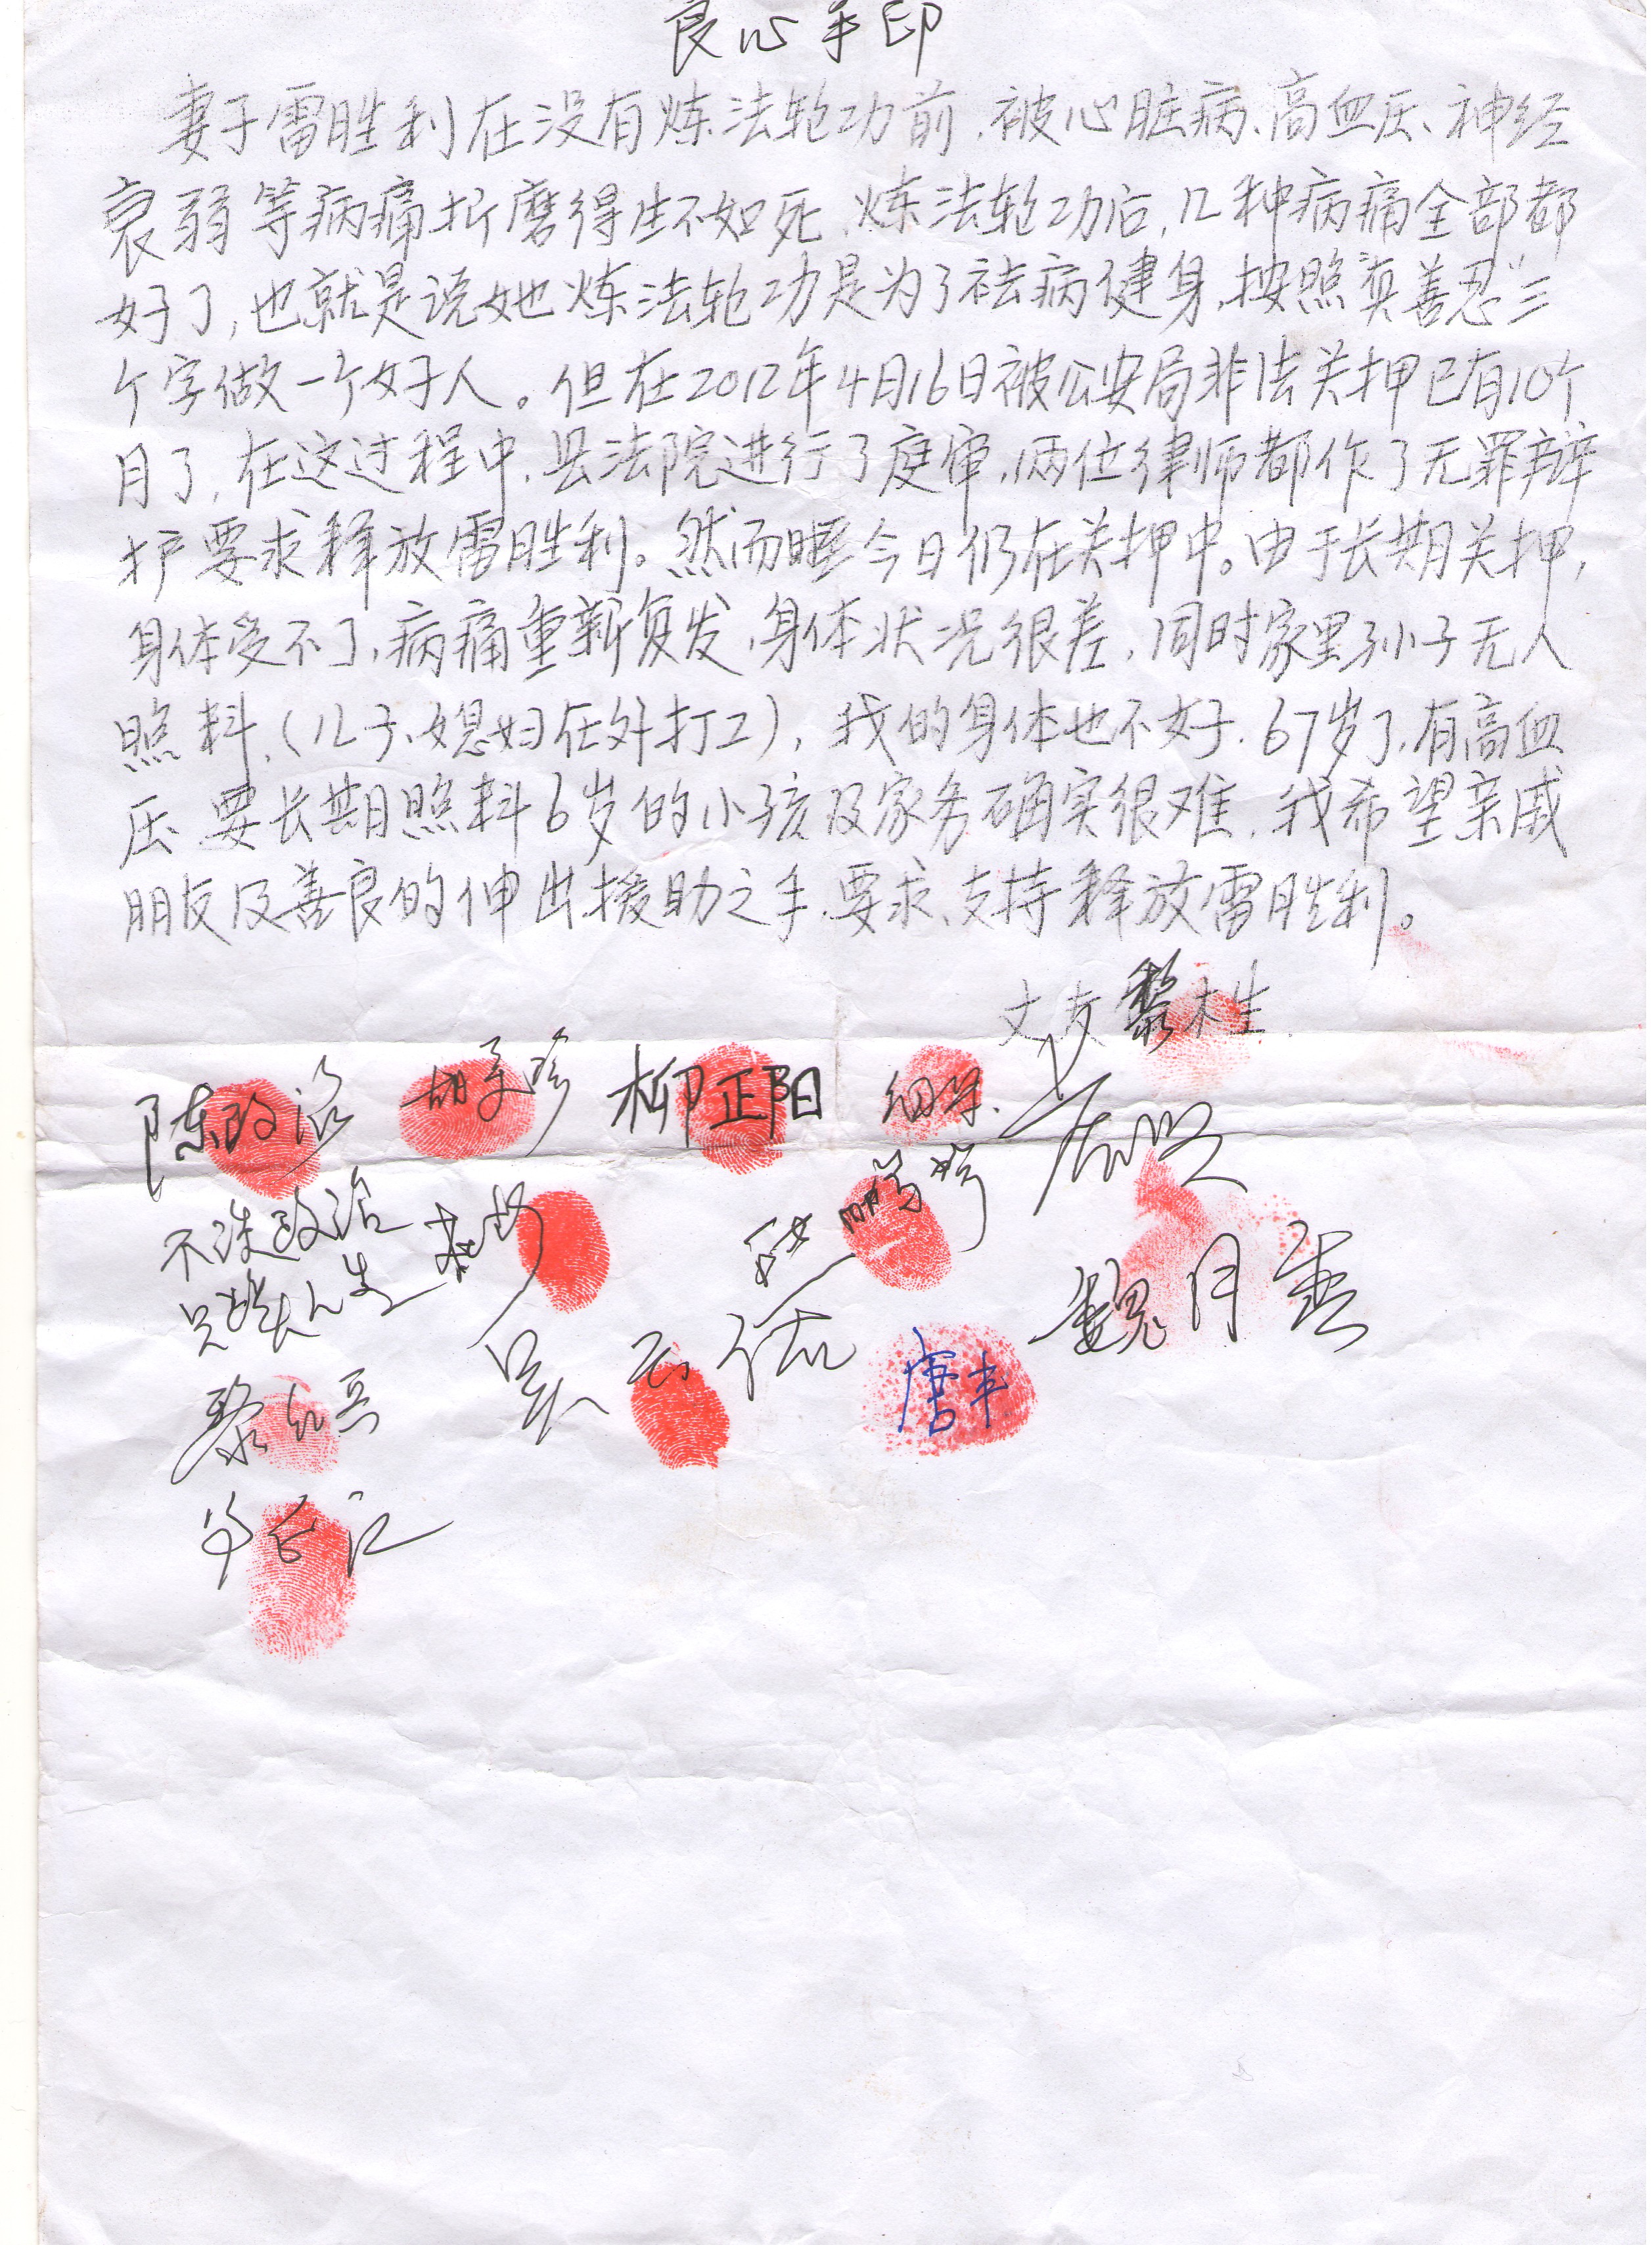 良心手印
妻子雷胜利在没有炼法轮功前,被心脏病、高血压、神经
衰弱等病痛折磨得生不如死,炼法轮功后,几种病痛全部都
好了,也就是说她炼法轮功是为了祛病健身,按照“真善忍”三
个字做一个好人。但在2012年4月16日被公安局非法关押已有10个
月了,在这过程中,县法院进行了庭审,俩位律师都作了无罪辩
护要求释放雷胜利。然而今日仍在关押中。由于长期关押,
身体受不了,病痛重新复发,身体状况很差,同时家里孙子无人
照料,(儿子、媳妇在外打工),我的身体也不好,67岁了,有高血
压,要长期照料6岁的小孩及家务确实很难,我希望亲戚
朋友及善良的伸出援助之手,要求、支持释放雷胜利。
丈夫黎木生
陈政治 柳正阳
不谈政治
魏月
唐丰